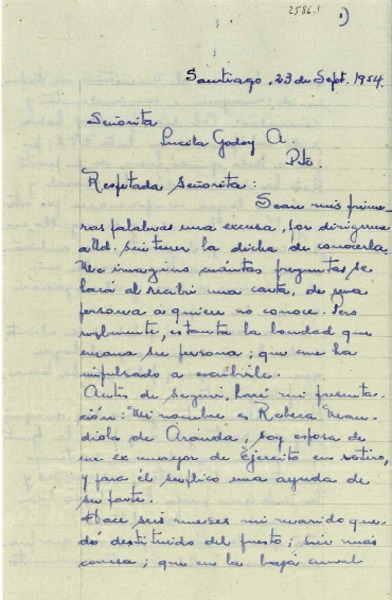 2586.1
1)
Santiago, 23 de Sept. 1954.
Señorita
Lucila Godoy A.
Pte.
Respetada Señorita:
Sean mis prime-
ras palabras una excusa, por dirigirme
a Ud. sin tener la dicha de conocerla.
Me imagino cuántas preguntas se
hará al recibir una carta, de una
persona a quien no conoce. Pero
realmente, es tanta la bondad que
emana su persona; que me ha
impulsado a escribirle.
Antes de seguir, haré mi presenta-
ción: Mi nombre es Rebeca Man-
diola de Aránda, soy esposa de
un ex mayor de Ejército en retiro,
y para él suplico una ayuda de
su parte.
Hace seis meses mi marido que-
dó destituido del puesto; sin más
causa; que en la baja